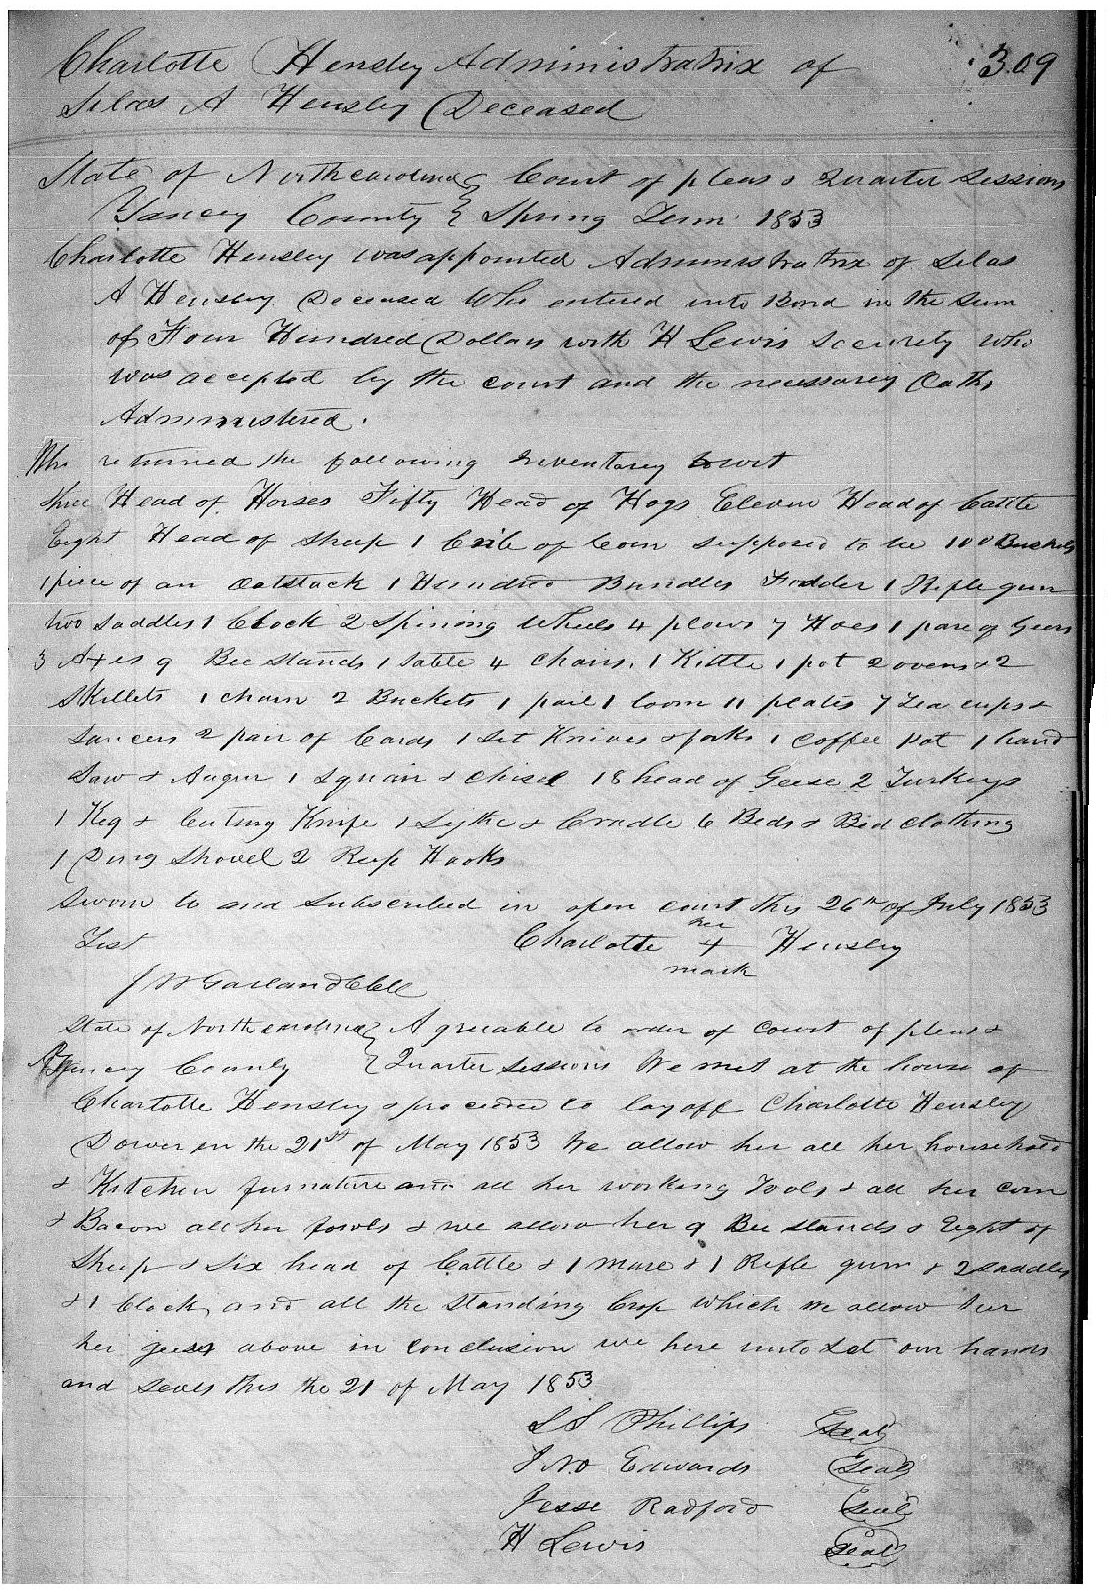 Charlotte Hensley Administratrix of 309
Silas A Hensley Deceased
State of North carolina } Court of pleas & Quarter Sessions
Yancey County } Spring Term 1853
Charlotte Hensley was appointed Administratrix of Silas
A Hensley Deceased Who entered into Bond in the Sum
of Four Hundred Dollars with H Lewis Security who
was accepted by the court and the necessarey Oaths
Administered.
Who returned the following Inventarey towit
three Head of Horses Fifty Head of Hogs Eleven Head of Cattle
Eight Head of Sheep 1 Crib of Corn supposed to be 100 Bushels
1 piece of an Oatstack 1 Hundred Bundles Fodder 1 Rifle gun
two Saddles 1 Clock 2 Spining Wheels 4 plows 7 Hoes 1 pare of Gears
3 Axes 9 Bee stands 1 Table 4 Chairs 1 Kittle 1 pot 2 ovens & 2
Skillets 1 churn 2 Buckets 1 pail 1 Loom 11 plates 7 Tea cups &
Saucers 2 pair of Cards 1 Set Knives & forks 1 Coffee Pot 1 hand
Saw & Augur 1 Squair & chisel 18 head of Geese 2 Turkeys
1 Keg & Cuting Knife 1 Sythe & Cradle 6 Beds & Bed clothing
1 Dung Shovel 2 Reep Hooks
Sworn to and Subscribed in open court this 26th of July 1853
Test Charlotte her + mark Hensley
J W Garland Clk
State of North carolina } Agreeable to order of Court of pleas &
Yancey County } Quarter sessions We met at the house of
Charlotte Hensley & proceeded to lay off Charlotte Hensley
Dower on the 21st of May 1853 We allow her all her household
& Kitchen furnature and all her working Tools & all her corn
& Bacon all her fowls & we allow her 9 Bee stands & Eight of
Sheep & Six head of Cattle & 1 mare & 1 Rifle gun & 2 Saddles
& 1 Clock and all the Standing Crop which we allow her
her above in conclusion we here unto Set our hands
and Seals this the 21 of May 1853
S S Phillips Seal
Jno Edwards Seal
Jesse Radford Seal
H Lewis Seal